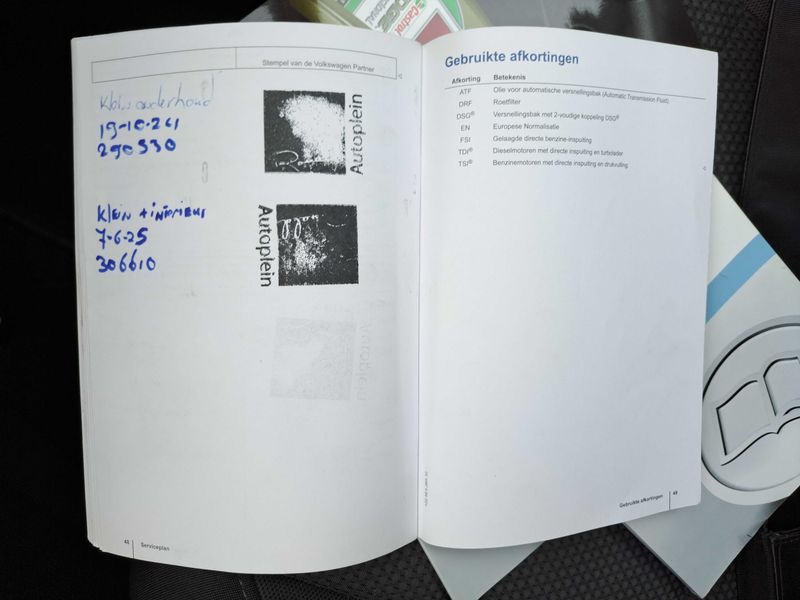 Castrol
Stempel van de Volkswagen Partner
Klein onderhoud
19-10-24
290330
Autoplein
Klein + interieur
7-6-25
306610
Autoplein
Autoplein
48 Serviceplan
Gebruikte afkortingen
Afkorting Betekenis
ATF Olie voor automatische versnellingsbak (Automatic Transmission Fluid)
DRF Roetfilter
DSG® Versnellingsbak met 2-voudige koppeling DSG®
EN Europese Normalisatie
FSI Gelaagde directe benzine-inspuiting
TDI® Dieselmotoren met directe inspuiting en turbolader
TSI® Benzinemotoren met directe inspuiting en drukvulling
Gebruikte afkortingen 49